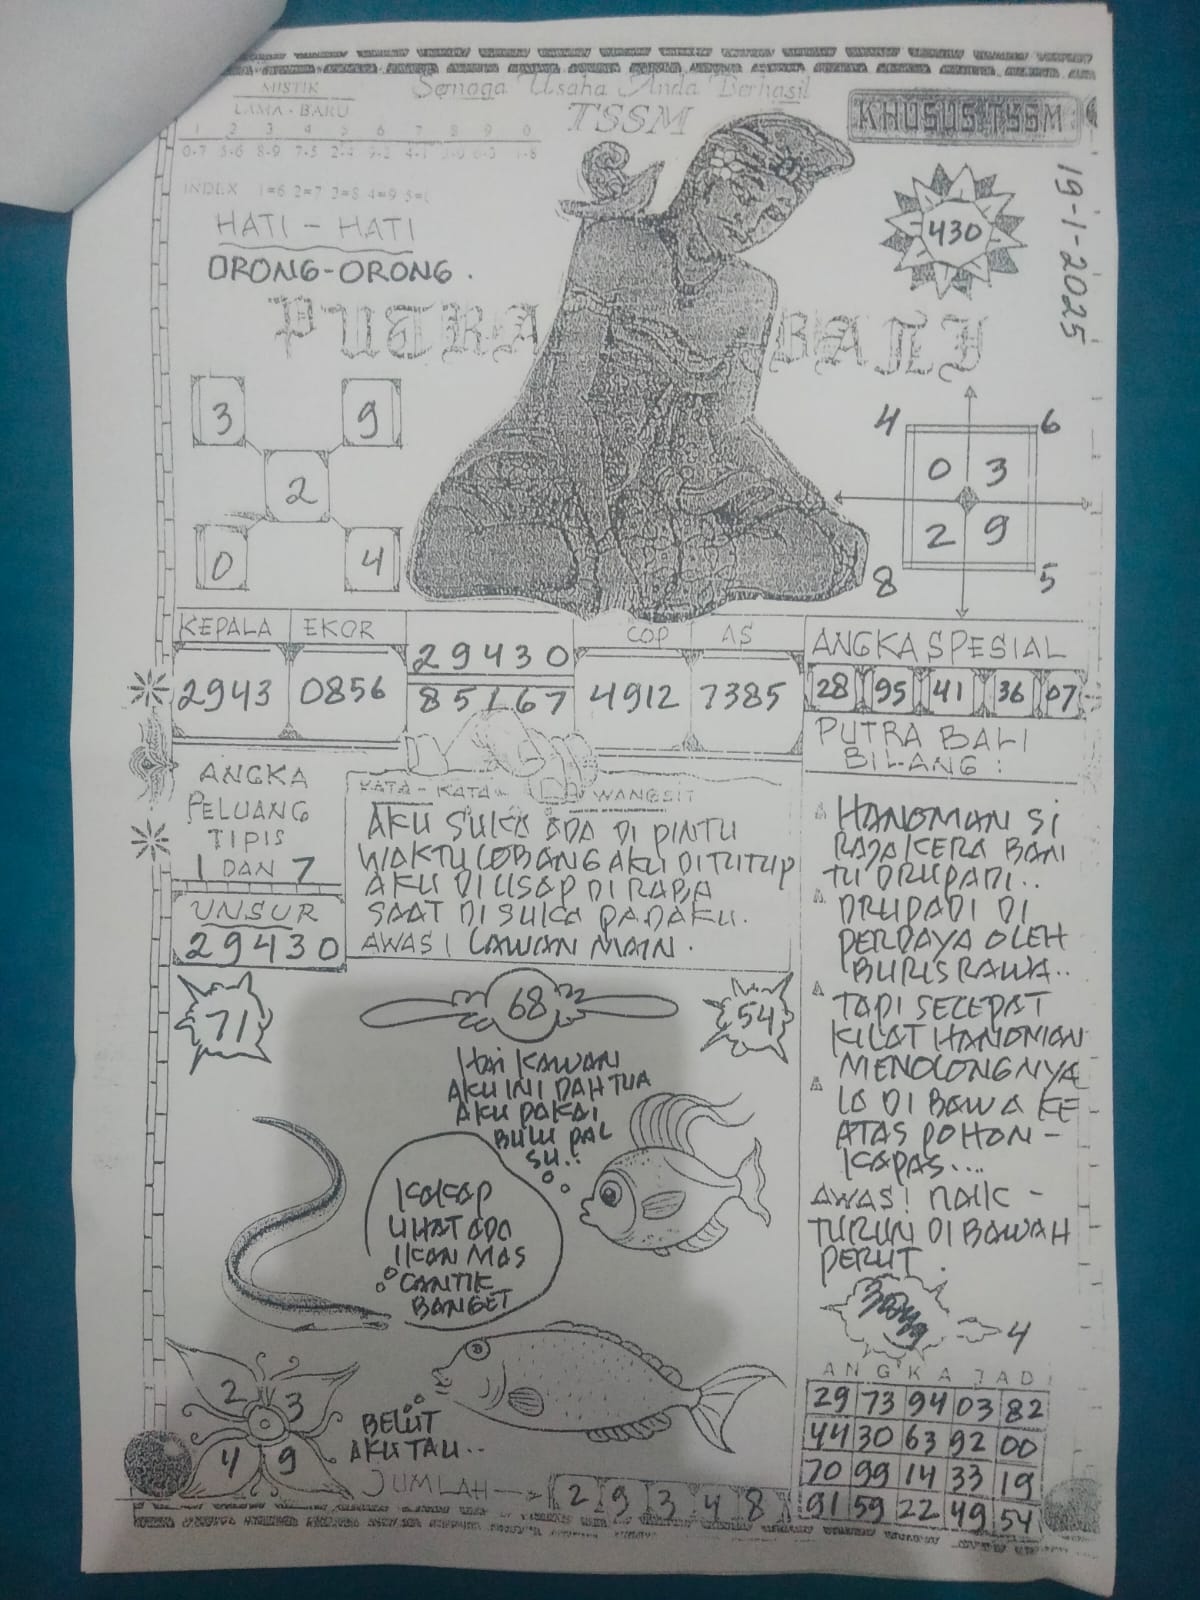 MISTIK
LAMA - BARU
Semoga Usaha Anda Berhasil
TSSM
KHUSUS TSSM
19-1-2025
1 2 3 4 5 6 7 8 9 0
0-7 5-6 8-9 7-5 2-4
INDEX 1=6 2=7 3=8 4=9 5=0
HATI - HATI
ORONG-ORONG.
430
PUTRA BALI
3 9
2
0 4
4 6
0 3
2 9
8 5
KEPALA EKOR
2943 0856
29430
85167
COP AS
4912 7385
ANGKA SPESIAL
28 95 41 36 07
PUTRA BALI
BILANG :
ANGKA
PELUANG
TIPIS
1 DAN 7
UNSUR
29430
KATA - KATA WANGSIT
AKU SUKA ADA DI PINTU
WAKTU LOBANG AKU DITUTUP
AKU DI USAP DI RABA
SAAT DI SUKA PADAKU.
AWAS! LAWAN MAIN.
HANOMAN SI
RAJA KERA BAN
TU DRUPADI..
DRUPADI DI
PERDAYA OLEH
BURISRAWA..
TAPI SECEPAT
KILAT HANOMAN
MENOLONGNYA
IA DI BAWA KE
ATAS POHON -
KAPAS....
AWAS! NAIK -
TURUN DI BAWAH
PERUT.
4
71
68
54
HAI KAWAN
AKU INI DAH TUA
AKU PAKAI
BULU PAL
SU..
KAKAP
LIHAT ADA
IKAN MAS
CANTIK
BANGET
BELUT
AKU TAU..
2 3
4 9
JUMLAH
2 9 3 4 8
ANGKA JADI
29 73 94 03 82
44 30 63 92 00
70 99 14 33 19
91 59 22 49 54